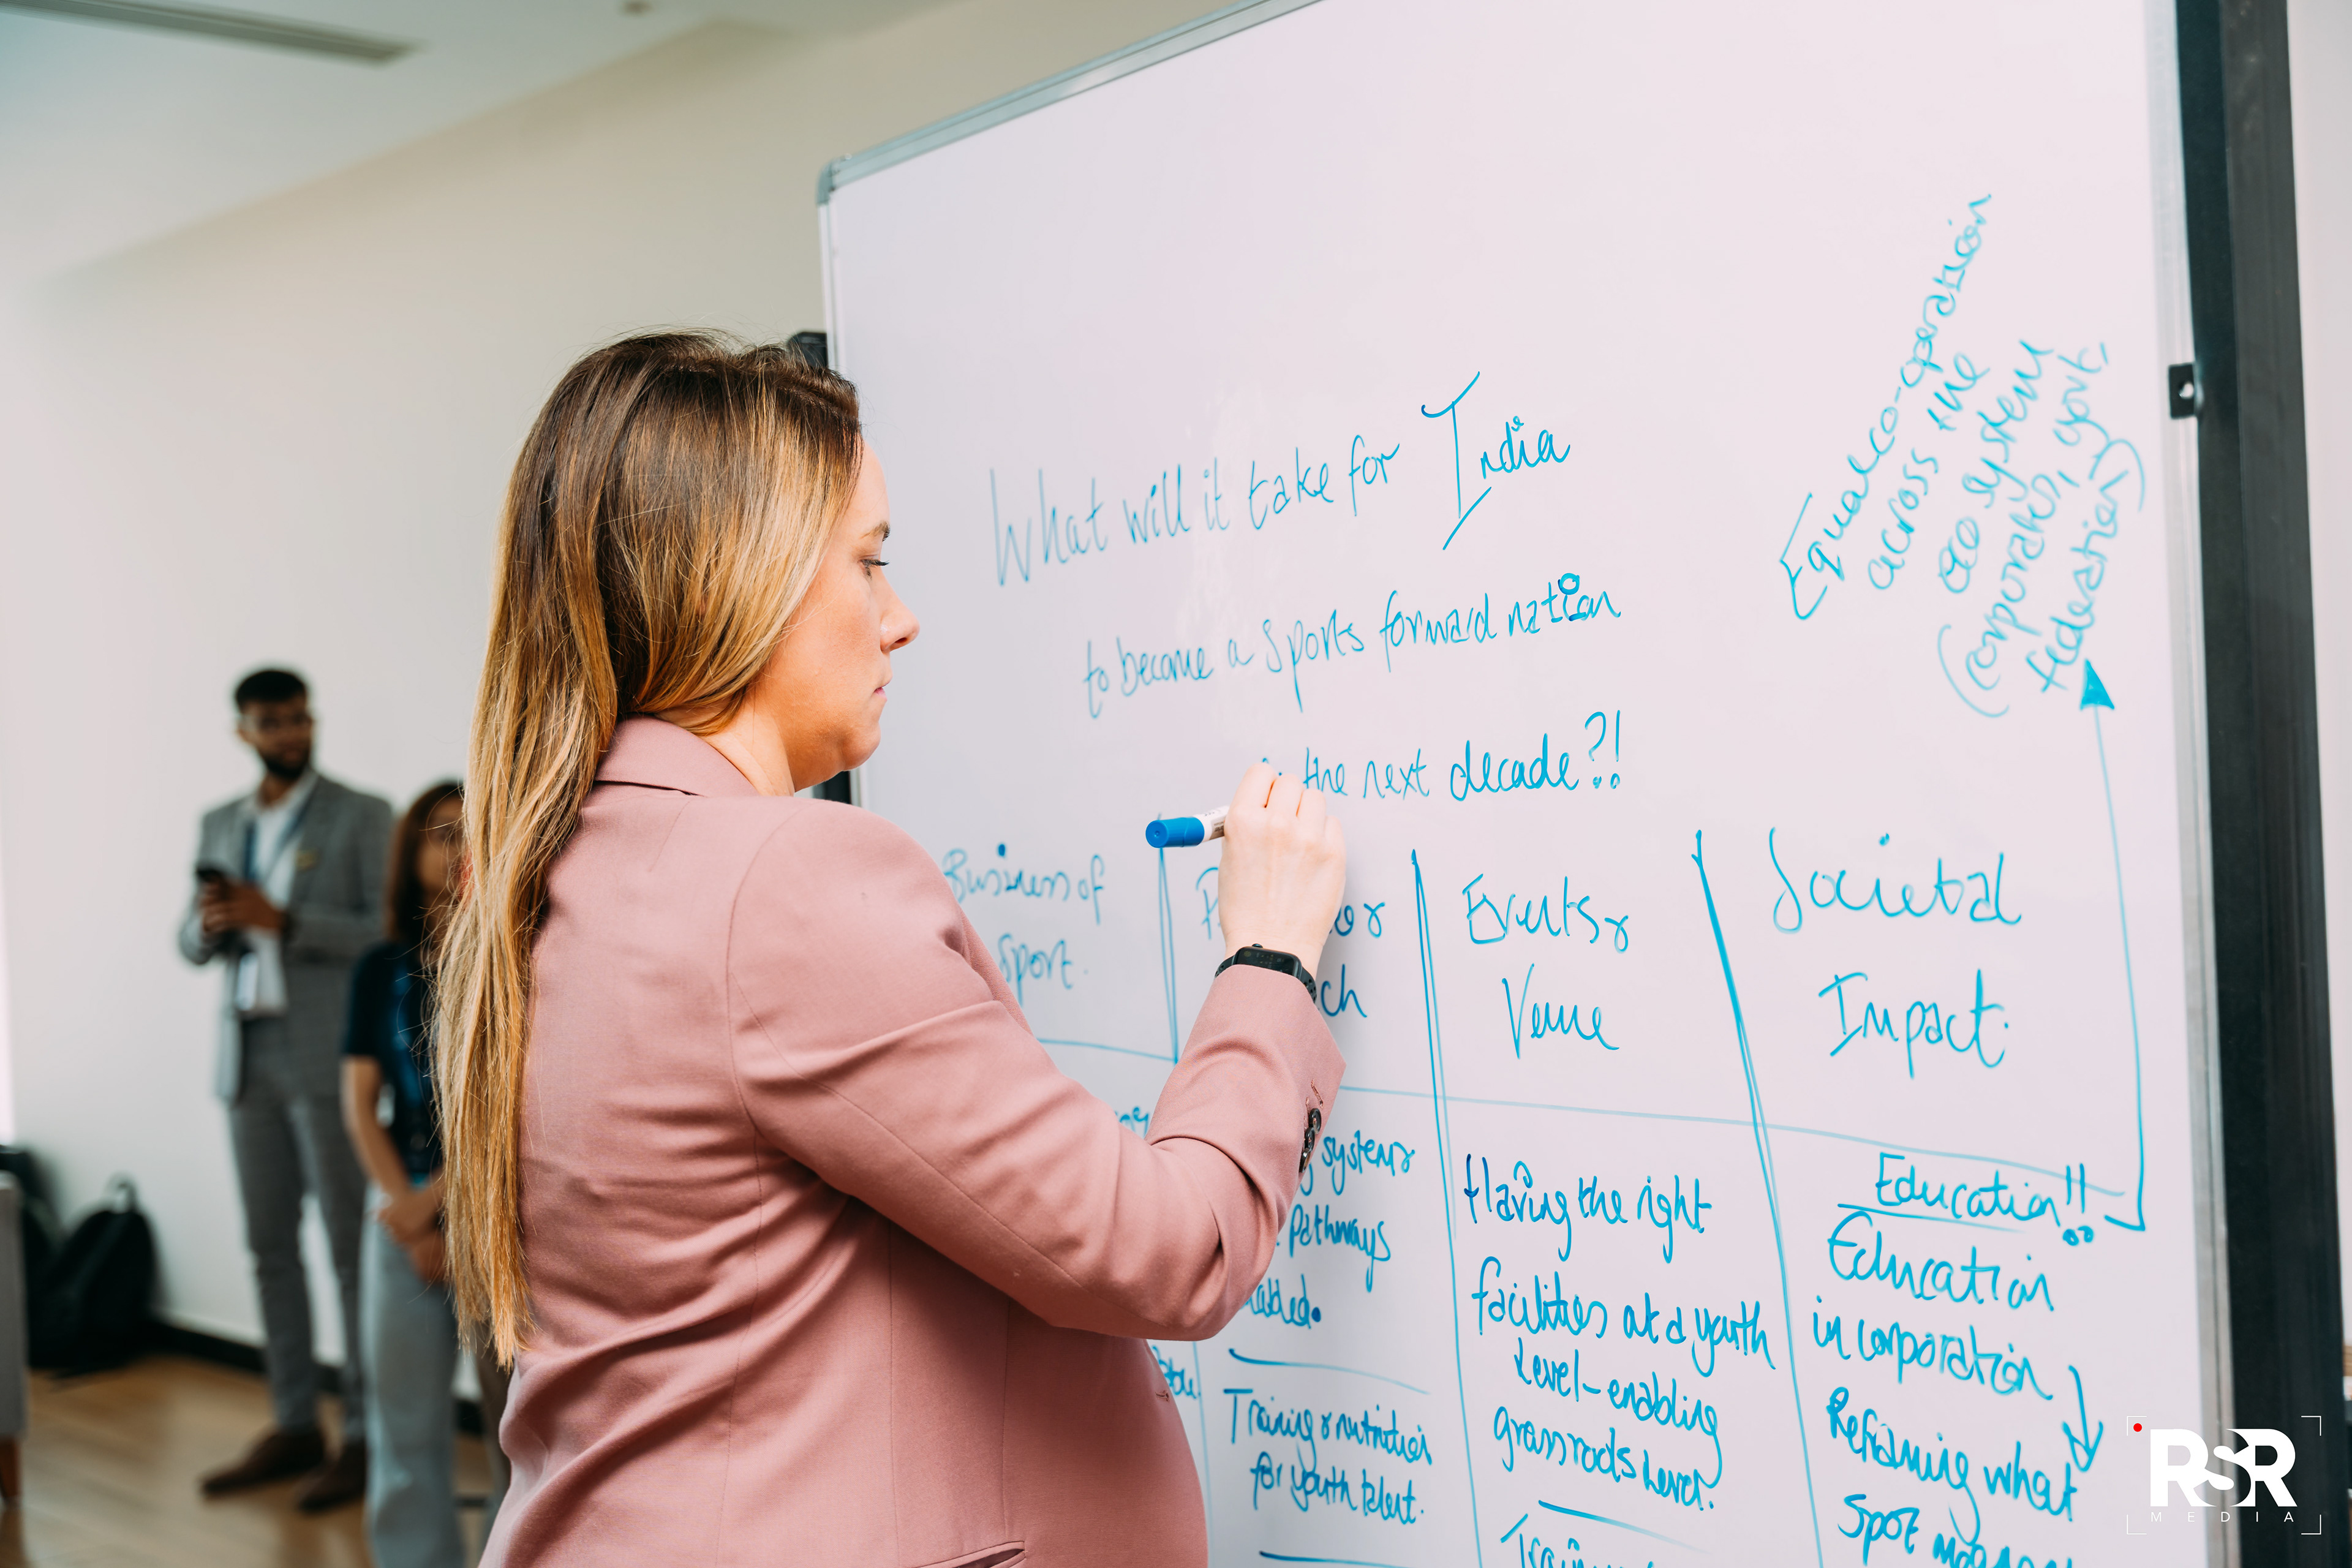 What will it take for India
to become a sports forward nation
the next decade?!
Equal co-operation
across the
eco system
(corporates, govt,
federation)
Business of
Sport.
Events &
Venue
Societal
Impact.
systems
pathways
Training & nutrition
for youth talent.
Having the right
facilities at a youth
level - enabling
grassroots level.
Education!!
Education
in corporation
Reframing what
Sport
RSR
MEDIA